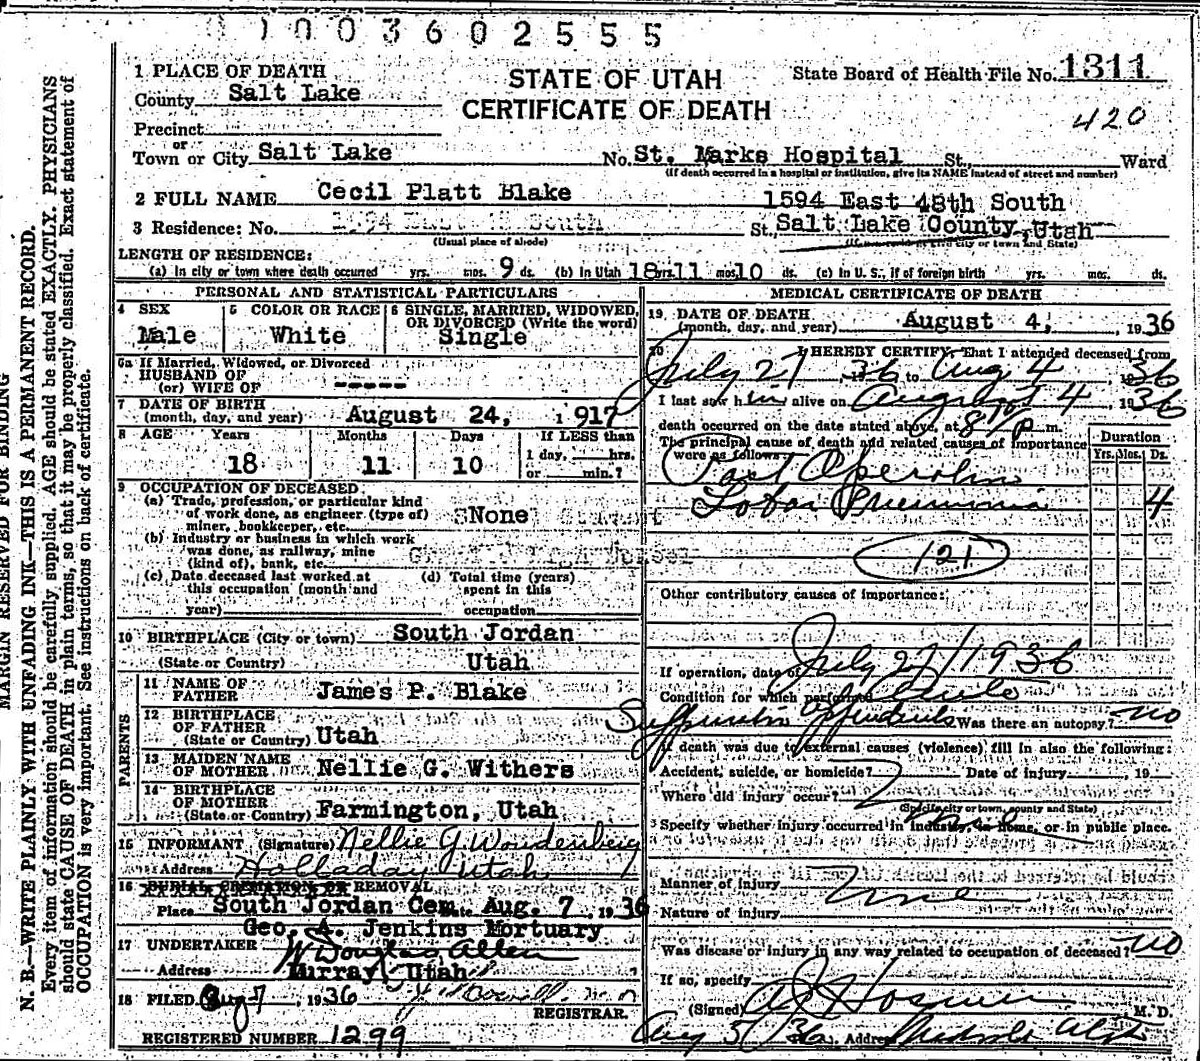 1003602555
1 PLACE OF DEATH
STATE OF UTAH
State Board of Health File No. 1311
County Salt Lake
CERTIFICATE OF DEATH
420
Precinct
or
Town or City Salt Lake No. St. Marks Hospital St., Ward
(If death occurred in a hospital or institution, give its NAME instead of street and number)
2 FULL NAME Cecil Platt Blake
1594 East 48th South
3 Residence: No. St., Salt Lake County, Utah
(Usual place of abode)
LENGTH OF RESIDENCE:
(a) In city or town where death occurred yrs. mos. 9 ds. (b) In Utah 18 yrs. 11 mos. 10 ds. (c) In U. S., if of foreign birth yrs. mos. ds.
PERSONAL AND STATISTICAL PARTICULARS
4 SEX
Male
5 COLOR OR RACE
White
6 SINGLE, MARRIED, WIDOWED,
OR DIVORCED (Write the word)
Single
6a If Married, Widowed, or Divorced
HUSBAND OF
(or) WIFE OF -----
7 DATE OF BIRTH
(month, day, and year) August 24, 1917
8 AGE Years Months Days If LESS than
18 11 10 1 day, hrs.
or min.?
9 OCCUPATION OF DECEASED:
(a) Trade, profession, or particular kind
of work done, as engineer (type of)
miner, bookkeeper, etc. None
(b) Industry or business in which work
was done, as railway, mine
(kind of), bank, etc.
(c) Date deceased last worked at
this occupation (month and
year)
(d) Total time (years)
spent in this
occupation
10 BIRTHPLACE (City or town) South Jordan
(State or Country) Utah
PARENTS
11 NAME OF
FATHER James P. Blake
12 BIRTHPLACE
OF FATHER
(State or Country) Utah
13 MAIDEN NAME
OF MOTHER Nellie G. Withers
14 BIRTHPLACE
OF MOTHER
(State or Country) Farmington, Utah
15 INFORMANT (Signature) Nellie G Woudenberg
Address Holladay Utah
16 BURIAL CREMATION OR REMOVAL
Place South Jordan Cem. Date Aug. 7, 1936
Geo. A. Jenkins Mortuary
17 UNDERTAKER W Douglas Allen
Address Murray Utah
18 FILED Aug 7, 1936
REGISTRAR.
REGISTERED NUMBER 1299
MEDICAL CERTIFICATE OF DEATH
19 DATE OF DEATH
(month, day, and year) August 4, 1936
20 I HEREBY CERTIFY, That I attended deceased from
July 27, 1936 to Aug 4, 1936
I last saw him alive on August 4, 1936
death occurred on the date stated above, at m.
The principal cause of death and related causes of importance
were as follows:
Duration
Yrs. Mos. Ds.
Post Operative
Lobar Pneumonia 4
121
Other contributory causes of importance:
If operation, date of July 27/1936
Condition for which performed Acute
Suppurative Appendicitis Was there an autopsy? no
If death was due to external causes (violence) fill in also the following:
Accident, suicide, or homicide? Date of injury , 19
Where did injury occur?
(Specify city or town, county and State)
Specify whether injury occurred in industry, in home, or in public place.
Manner of injury
Nature of injury
Was disease or injury in any way related to occupation of deceased? no
If so, specify
(Signed) M. D.
Aug 5/36. Address
MARGIN RESERVED FOR BINDING
N. B.—WRITE PLAINLY WITH UNFADING INK—THIS IS A PERMANENT RECORD.
Every item of information should be carefully supplied. AGE should be stated EXACTLY. PHYSICIANS
should state CAUSE OF DEATH in plain terms, so that it may be properly classified. Exact statement of
OCCUPATION is very important. See instructions on back of certificate.